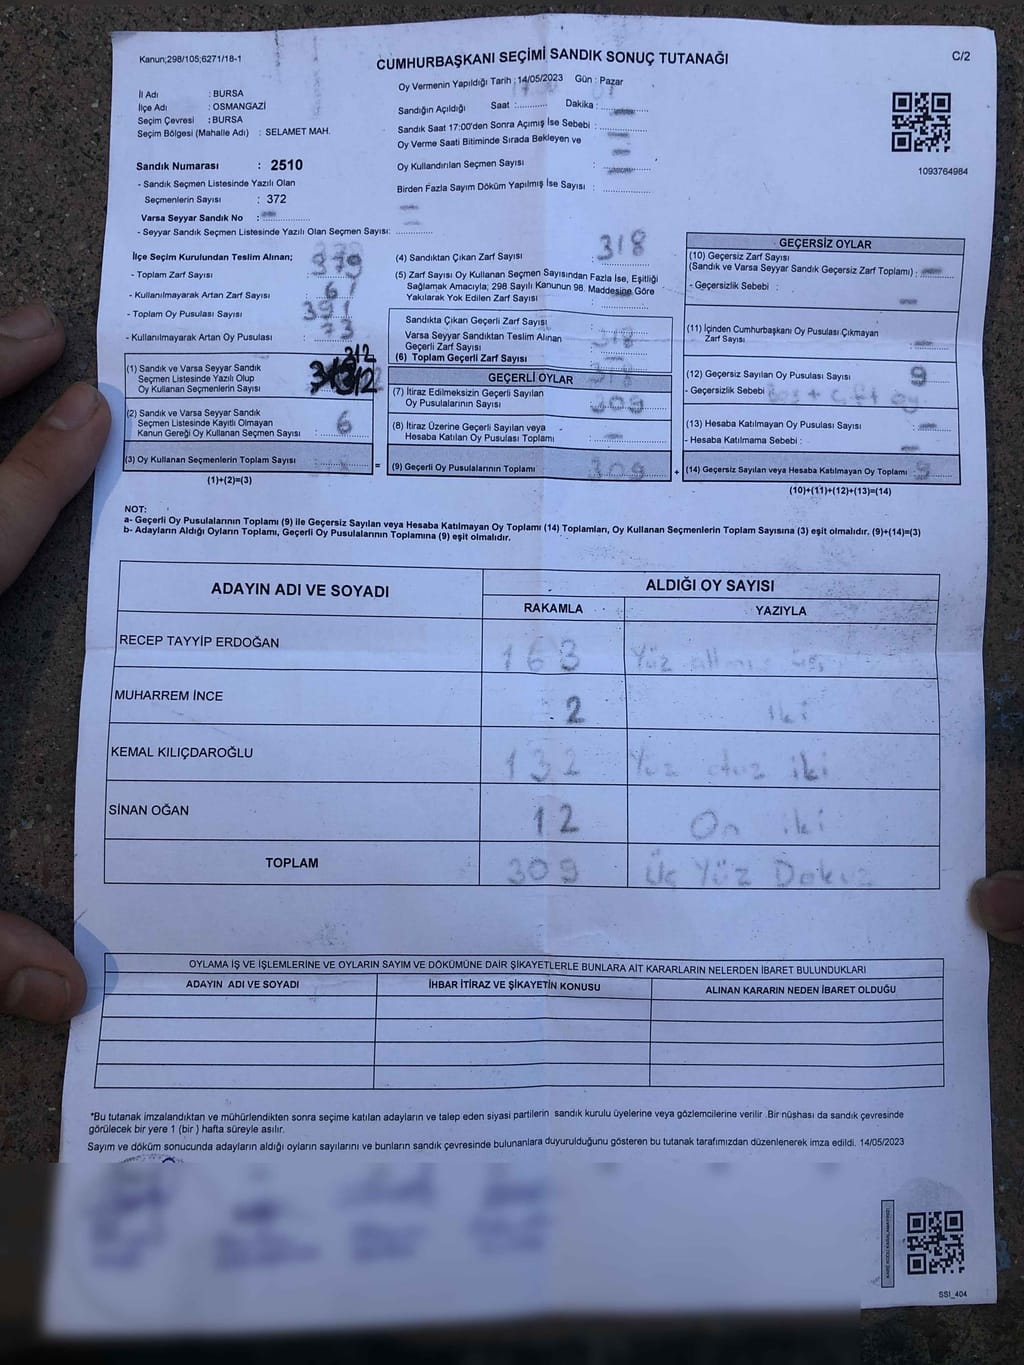 Kanun;298/105;6271/18-1
CUMHURBAŞKANI SEÇİMİ SANDIK SONUÇ TUTANAĞI
C/2
Oy Vermenin Yapıldığı Tarih : 14/05/2023 Gün : Pazar
İl Adı : BURSA
İlçe Adı : OSMANGAZİ
Seçim Çevresi : BURSA
Seçim Bölgesi (Mahalle Adı) : SELAMET MAH.
Sandığın Açıldığı Saat :.......... Dakika :
Sandık Saat 17:00'den Sonra Açımış İse Sebebi :
Oy Verme Saati Bitiminde Sırada Bekleyen ve
Oy Kullandırılan Seçmen Sayısı :
Birden Fazla Sayım Döküm Yapılmış İse Sayısı :
1093764984
Sandık Numarası : 2510
- Sandık Seçmen Listesinde Yazılı Olan
Seçmenlerin Sayısı : 372
Varsa Seyyar Sandık No :
- Seyyar Sandık Seçmen Listesinde Yazılı Olan Seçmen Sayısı:
İlçe Seçim Kurulundan Teslim Alınan;
- Toplam Zarf Sayısı : 379
- Kullanılmayarak Artan Zarf Sayısı : 61
- Toplam Oy Pusulası Sayısı : 391
- Kullanılmayarak Artan Oy Pusulası : 73
(1) Sandık ve Varsa Seyyar Sandık
Seçmen Listesinde Yazılı Olup
Oy Kullanan Seçmenlerin Sayısı : 312
(2) Sandık ve Varsa Seyyar Sandık
Seçmen Listesinde Kayıtlı Olmayan
Kanun Gereği Oy Kullanan Seçmen Sayısı : 6
(3) Oy Kullanan Seçmenlerin Toplam Sayısı :
(1)+(2)=(3)
=
(4) Sandıktan Çıkan Zarf Sayısı : 318
(5) Zarf Sayısı Oy Kullanan Seçmen Sayısından Fazla İse, Eşitliği
Sağlamak Amacıyla; 298 Sayılı Kanunun 98. Maddesine Göre
Yakılarak Yok Edilen Zarf Sayısı :
Sandıkta Çıkan Geçerli Zarf Sayısı :
Varsa Seyyar Sandıktan Teslim Alınan
Geçerli Zarf Sayısı : 318
(6) Toplam Geçerli Zarf Sayısı : 318
GEÇERLİ OYLAR
(7) İtiraz Edilmeksizin Geçerli Sayılan
Oy Pusulalarının Sayısı : 309
(8) İtiraz Üzerine Geçerli Sayılan veya
Hesaba Katılan Oy Pusulası Toplamı :
(9) Geçerli Oy Pusulalarının Toplamı : 309
+
GEÇERSİZ OYLAR
(10) Geçersiz Zarf Sayısı
(Sandık ve Varsa Seyyar Sandık Geçersiz Zarf Toplamı) :
- Geçersizlik Sebebi :
(11) İçinden Cumhurbaşkanı Oy Pusulası Çıkmayan
Zarf Sayısı :
(12) Geçersiz Sayılan Oy Pusulası Sayısı : 9
- Geçersizlik Sebebi : Boş + Çift oy
(13) Hesaba Katılmayan Oy Pusulası Sayısı :
- Hesaba Katılmama Sebebi :
(14) Geçersiz Sayılan veya Hesaba Katılmayan Oy Toplamı : 9
(10)+(11)+(12)+(13)=(14)
NOT:
a- Geçerli Oy Pusulalarının Toplamı (9) ile Geçersiz Sayılan veya Hesaba Katılmayan Oy Toplamı (14) Toplamları, Oy Kullanan Seçmenlerin Toplam Sayısına (3) eşit olmalıdır. (9)+(14)=(3)
b- Adayların Aldığı Oyların Toplamı, Geçerli Oy Pusulalarının Toplamına (9) eşit olmalıdır.
ADAYIN ADI VE SOYADI ALDIĞI OY SAYISI
RAKAMLA YAZIYLA
RECEP TAYYİP ERDOĞAN 163 Yüz altmış üç
MUHARREM İNCE 2 iki
KEMAL KILIÇDAROĞLU 132 Yüz otuz iki
SİNAN OĞAN 12 On iki
TOPLAM 309 Üç Yüz Dokuz
OYLAMA İŞ VE İŞLEMLERİNE VE OYLARIN SAYIM VE DÖKÜMÜNE DAİR ŞİKAYETLERLE BUNLARA AİT KARARLARIN NELERDEN İBARET BULUNDUKLARI
ADAYIN ADI VE SOYADI İHBAR İTİRAZ VE ŞİKAYETİN KONUSU ALINAN KARARIN NEDEN İBARET OLDUĞU
*Bu tutanak imzalandıktan ve mühürlendikten sonra seçime katılan adayların ve talep eden siyasi partilerin sandık kurulu üyelerine veya gözlemcilerine verilir .Bir nüshası da sandık çevresinde
görülecek bir yere 1 (bir ) hafta süreyle asılır.
Sayım ve döküm sonucunda adayların aldığı oyların sayılarını ve bunların sandık çevresinde bulunanlara duyurulduğunu gösteren bu tutanak tarafımızdan düzenlenerek imza edildi. 14/05/2023
KARE KODU KARALAMAYINIZ!
SSI_404